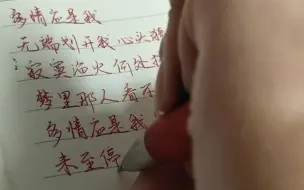 多情应是我
无端划开我心头
寂寞渔火何处
梦里那人看不
多情应是我
未至停